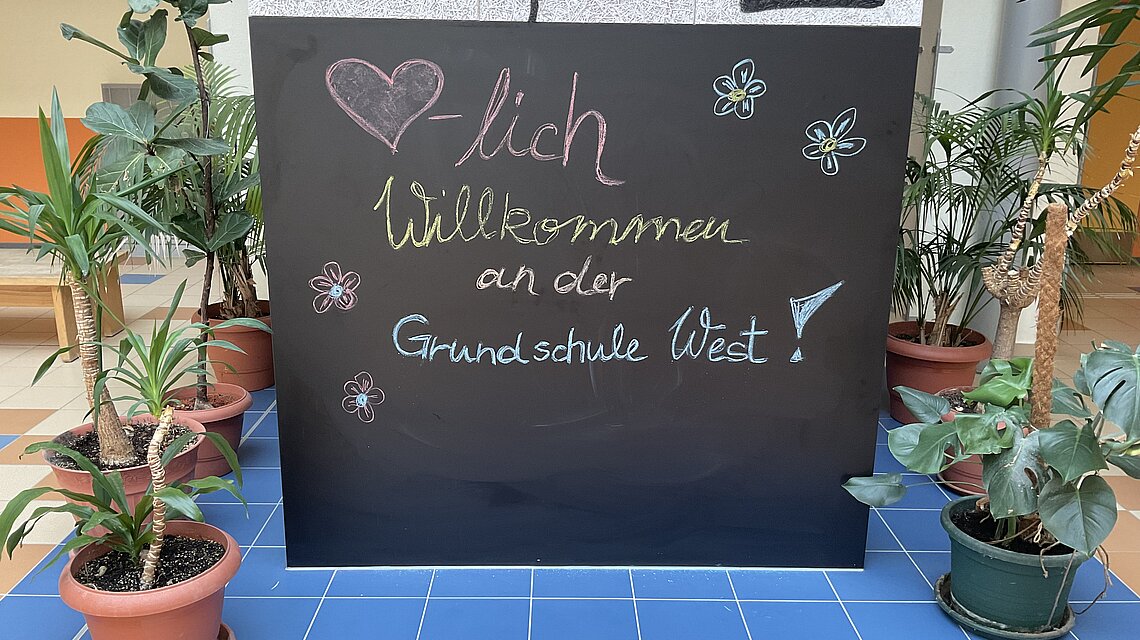 ♥-lich
Willkommen
an der
Grundschule West!